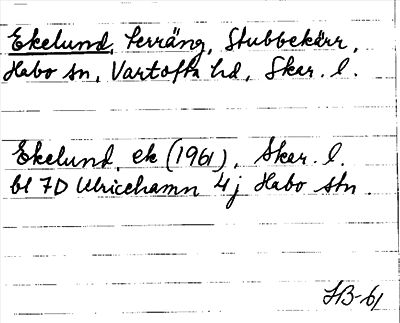 Ekelund, terräng, Stubbekärr,
Habo sn, Vartofta hd, Skar. l.
Ekelund, ek (1961), Skar. l.
bl 7D Ulricehamn 4j Habo stn.
HB-61